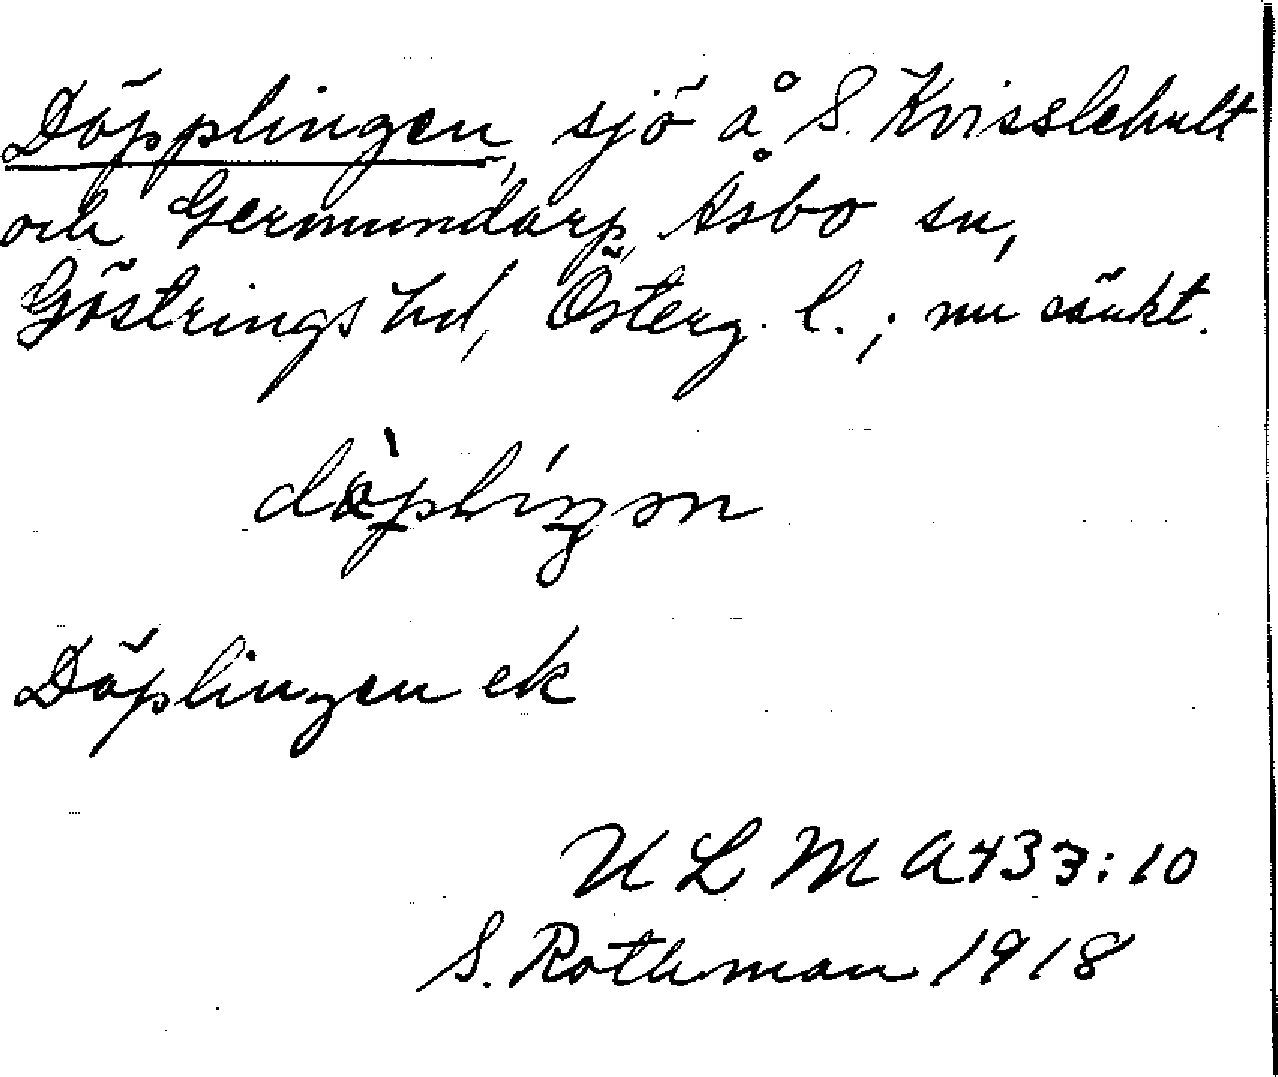 Döpplingen, sjö å S. Kvisslehult
och Germundarp, Åsbo sn,
Göstrings hd, Österg. l.; nu sänkt.
Döplingen ek
U L M A 433:10
S. Rothman 1918